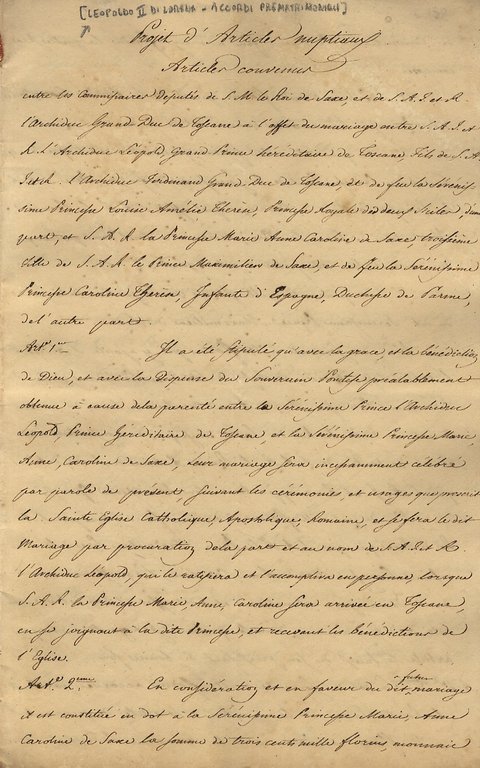 [LEOPOLDO II DI LORENA - ACCORDI PREMATRIMONIALI]
Projet d'Articles nuptiaux
Articles convenus
entre les Commissaires Députés de S. M. le Roi de Saxe, et de S. A. I. et R.
l'Archiduc Grand Duc de Toscane à l'effet du mariage entre S. A. I. et
R. l'Archiduc Léopold, Grand Prince héréditaire de Toscane Fils de S. A.
I. et R. l'Archiduc Ferdinand Grand Duc de Toscane et de feue la Sérenis-
sime Princesse Louise Amélie Therèse, Princesse Royale des deux Siciles, d'une
part, et S. A. R. la Princesse Marie Anne Caroline de Saxe troisième
Fille de S. A. R. le Prince Maximilien de Saxe, et de feu la Serénissime
Princesse Caroline Therèse, Infante d'Espagne, Duchesse de Parme,
de l'autre part
Art.º 1.er Il a été stipulé qu'avec la grace, et la bénédiction
de Dieu, et avec la Dispense du Souverain Pontife préalablement
obtenue à cause dela parenté entre le Sérénissime Prince l'Archiduc
Léopold, Prince Héréditaire de Toscane et la Sérénissime Princesse Marie,
Anne, Caroline de Saxe, leur mariage sera incessamment célébré
par parole de présent suivant les cérémonies, et usages que prescrit
la Sainte Eglise Catholique, Apostolique, Romaine, et se fera le dit
Mariage par procuration dela part et au nom de S. A. I. et R.
l'Archiduc Léopold, qui le ratifiera et l'accomplira en personne, lorsque
S. A. R. la Princesse Marie Anne, Caroline sera arrivée en Toscane,
en se joignant à la dite Princesse, et recevant les bénédictions de
l'Eglise.
Art.º 2.eme En considération, et en faveur du dit futur mariage
il est constitué en dot à la Sérénissime Princesse Marie, Anne
Caroline de Saxe la somme de trois cents mille florins, monnaie